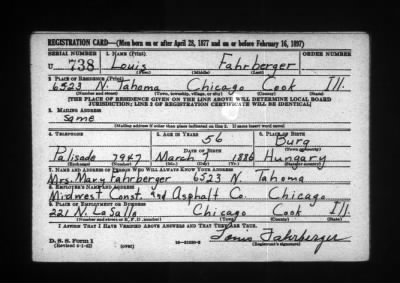 REGISTRATION CARD—(Men born on or after April 28, 1877 and on or before February 16, 1897)
SERIAL NUMBER 1. NAME (Print) ORDER NUMBER
U 738 Louis Fahrberger
(First) (Middle) (Last)
2. PLACE OF RESIDENCE (Print)
6523 N. Tahoma Chicago Cook Ill.
(Number and street) (Town, township, village, or city) (County) (State)
[THE PLACE OF RESIDENCE GIVEN ON THE LINE ABOVE WILL DETERMINE LOCAL BOARD
JURISDICTION; LINE 2 OF REGISTRATION CERTIFICATE WILL BE IDENTICAL]
3. MAILING ADDRESS
Same
[Mailing address if other than place indicated on line 2. If same insert word same]
4. TELEPHONE 5. AGE IN YEARS 6. PLACE OF BIRTH
56 Burg
DATE OF BIRTH (Town or county)
Palisade 7957 March 1886 Hungary
(Exchange) (Number) (Mo.) (Day) (Yr.) (State or country)
7. NAME AND ADDRESS OF PERSON WHO WILL ALWAYS KNOW YOUR ADDRESS
Mrs. Mary Fahrberger 6523 N. Tahoma
8. EMPLOYER'S NAME AND ADDRESS
Midwest Const. and Asphalt Co. Chicago
9. PLACE OF EMPLOYMENT OR BUSINESS
221 N. LaSalle Chicago Cook Ill
(Number and street or R. F. D. number) (Town) (County) (State)
I AFFIRM THAT I HAVE VERIFIED ABOVE ANSWERS AND THAT THEY ARE TRUE.
Louis Fahrberger
D. S. S. Form 1 (Registrant's signature)
(Revised 4-1-42) (over)